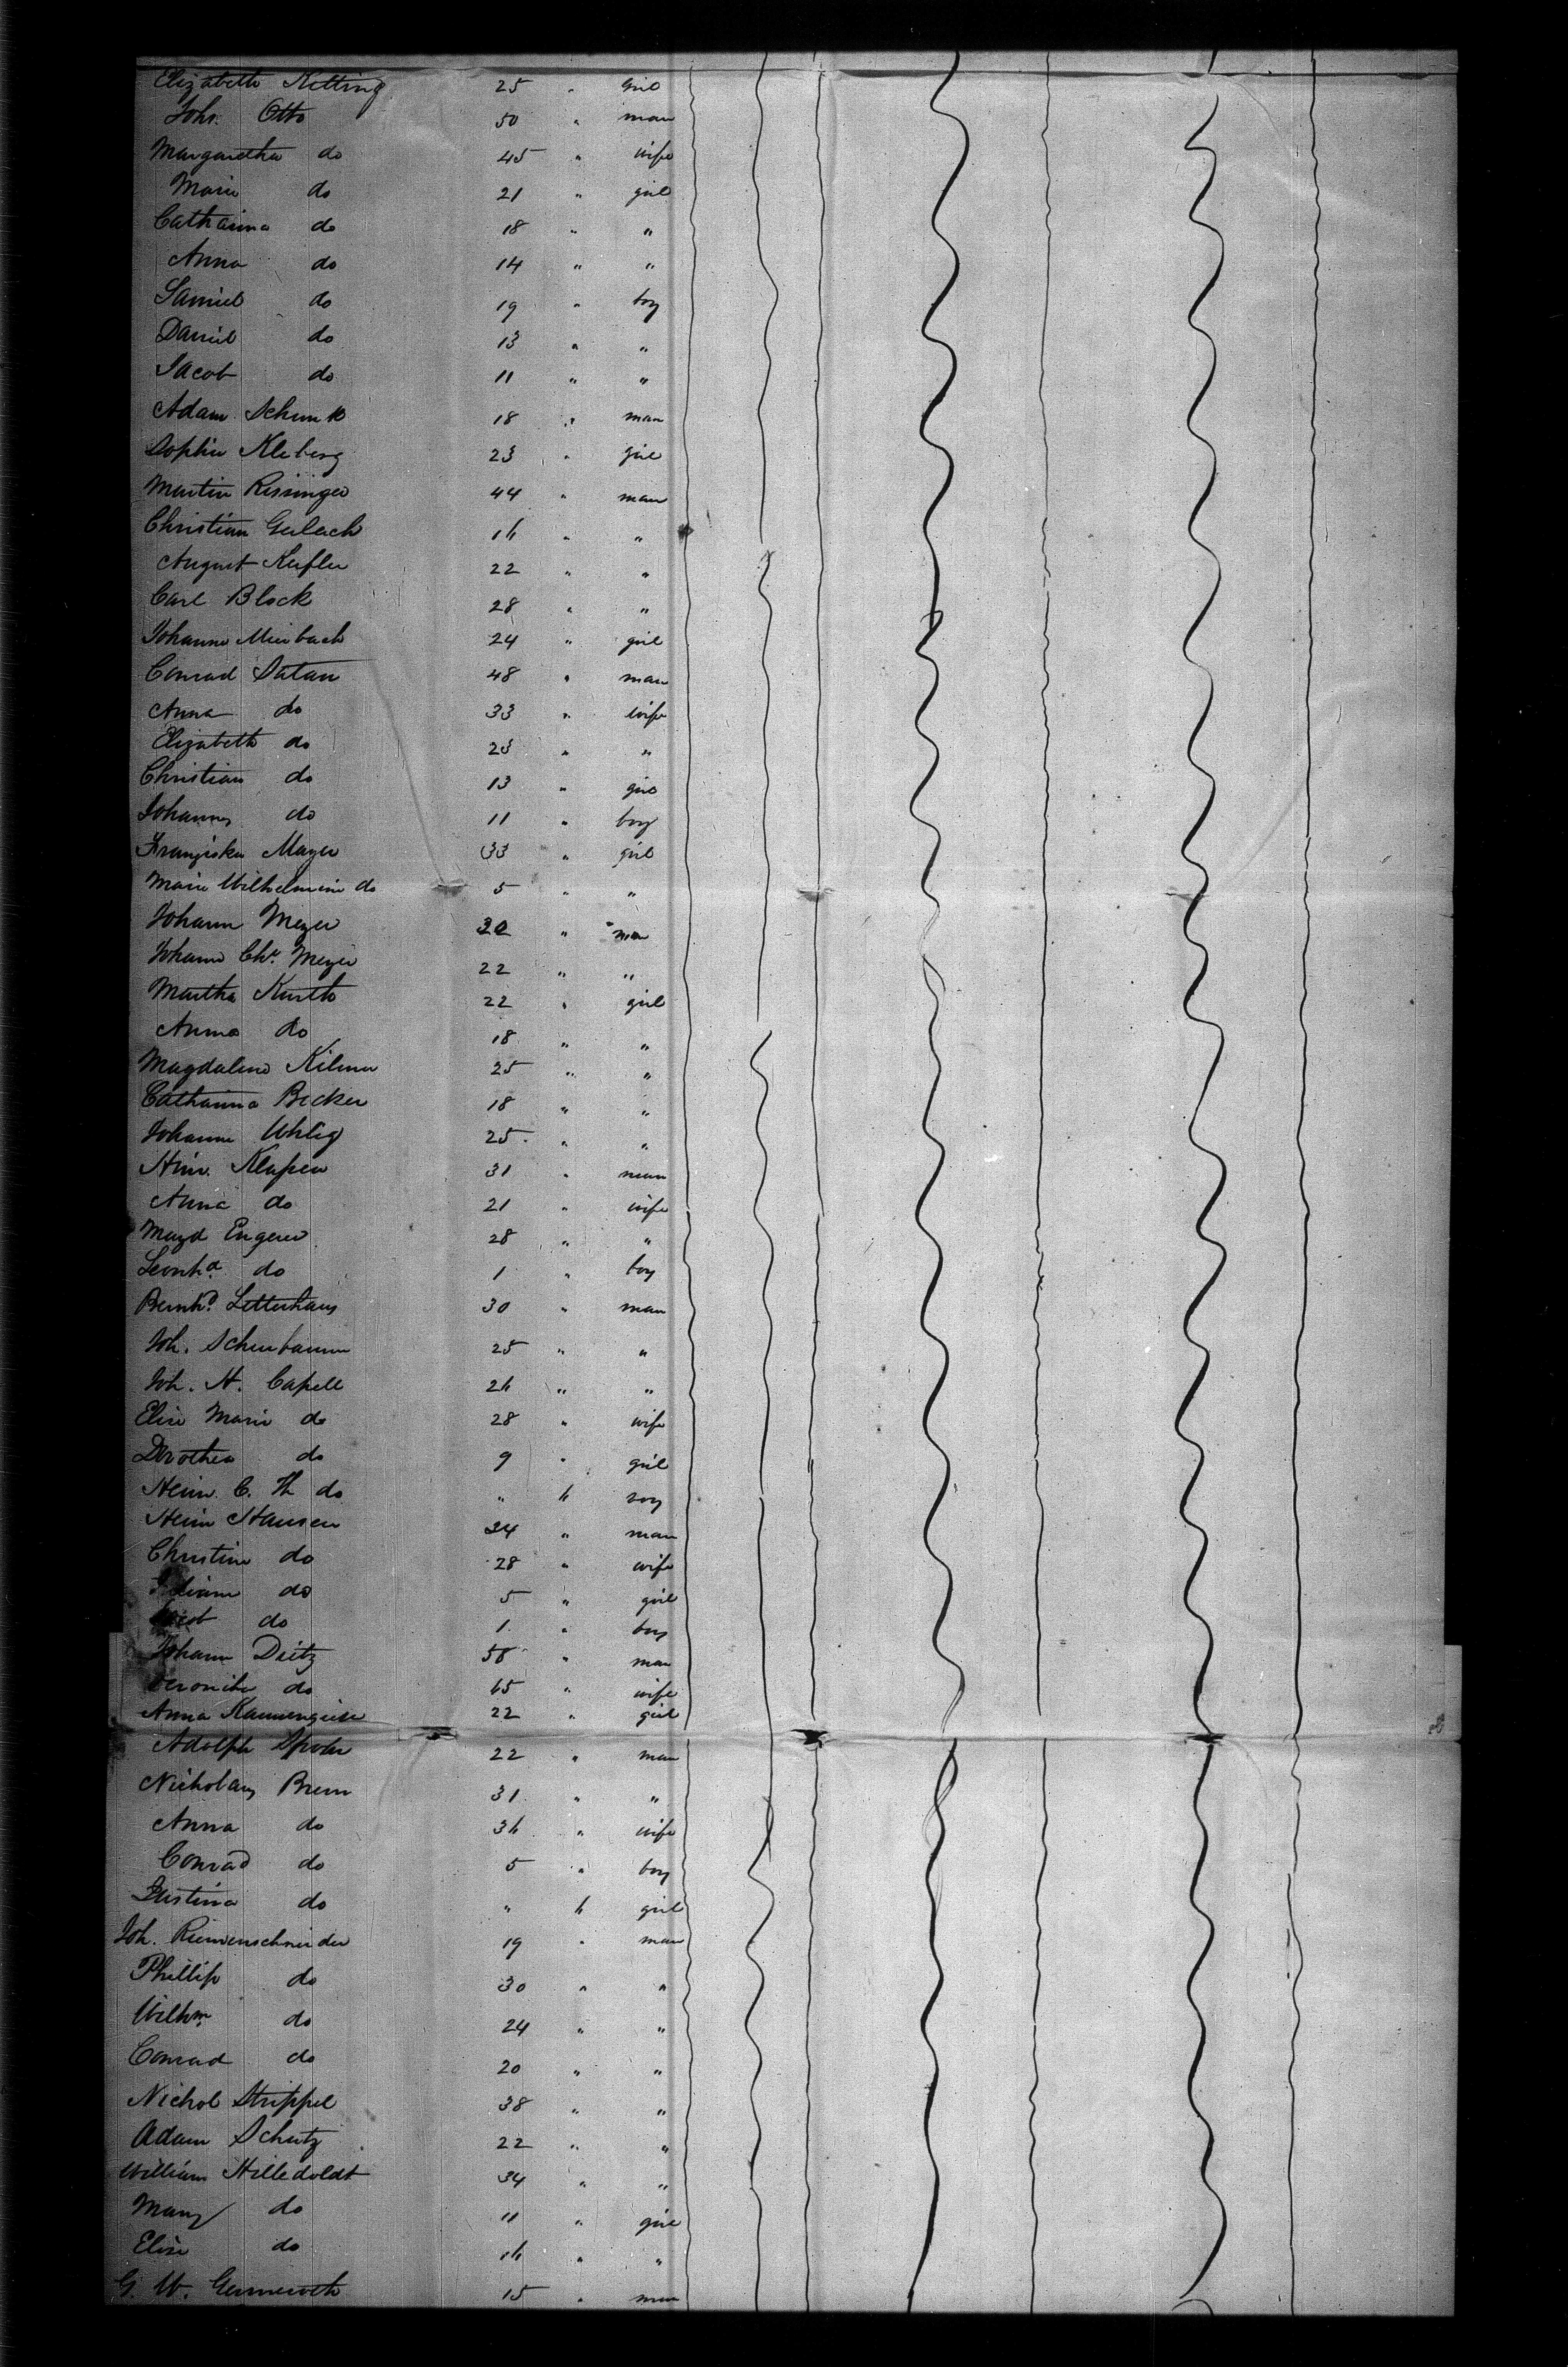 Elizabeth Ketting 25 " girl
Joh. Otto 50 " man
Margaretha do 45 " wife
Marie do 21 " girl
Catharina do 18 " "
Anna do 14 " "
Samuel do 19 " boy
Daniel do 13 " "
Jacob do 11 " "
Adam Schunk 18 " man
Sophie Kleberg 23 " girl
Martin Rissinger 44 " man
Christian Gerlach 16 " "
August Keifler 22 " "
Carl Block 28 " "
Johanne Meinbach 24 " girl
Conrad Satan 48 " man
Anna do 33 " wife
Elizabeth do 23 " "
Christian do 13 " girl
Johannes do 11 " boy
Franziska Mayer 33 " girl
Marie Wilhelmine do 5 " "
Johann Meyer 32 " man
Johann Chr. Meyer 22 " "
Martha Kurth 22 " girl
Anna do 18 " "
Magdalena Kilmer 25 " "
Catharina Becker 18 " "
Johanne Uhlig 25 " "
Hinr. Klapen 31 " man
Anna do 21 " wife
Magd Engerer 28 " "
Leonhd do 1 " boy
Bernhd Letterhaus 30 " man
Joh. Scheubaum 25 " "
Joh. H. Capell 26 " "
Elise Marie do 28 " wife
Dorothea do 9 " girl
Heinr. C. Th do " 6 boy
Heinr Hansen 34 " man
Christine do 28 " wife
do 5 " girl
Jacob do 1 " boy
Johann Dietz 58 " man
Veronika do 65 " wife
Anna Kannengieser 22 " girl
Adolph Spohr 22 " man
Nicholaus Brem 31 " "
Anna do 36 " wife
Conrad do 5 " boy
Justina do " 6 girl
Joh. Riemenschneider 19 " man
Phillip do 30 " "
Wilhm do 24 " "
Conrad do 20 " "
Nichol Strippel 38 " "
Adam Schutz 22 " "
William Hilledoldt 34 " "
Mary do 11 " girl
Elise do 16 " "
G. W. Germeroth 15 " man